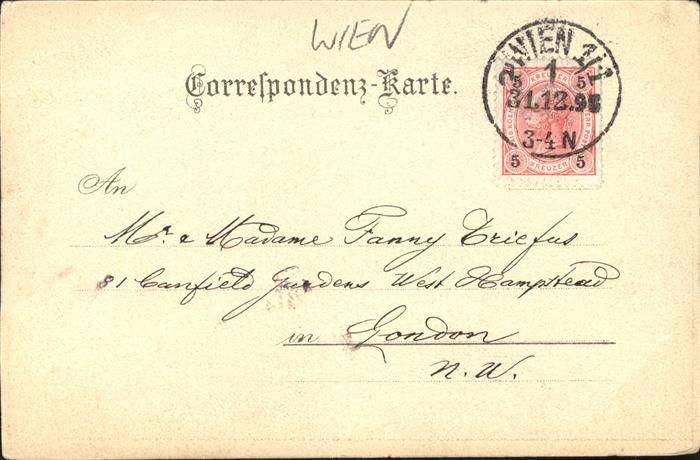 WIEN
Correspondenz-Karte.
WIEN 1/1
1
31.12.98
3-4 N
5 KREUZER 5
5 KREUZER 5
An
Mr. & Madame Fanny Triefus
81 Canfield Gardens West Hampstead
in London
N. W.